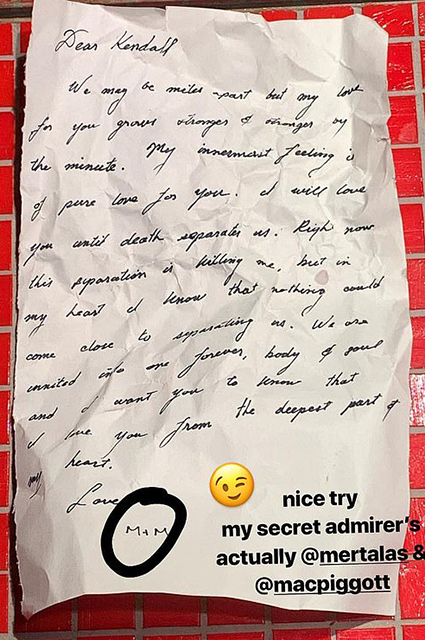 Dear Kendall
We may be miles apart but my love
for you grows stronger & stronger by
the minute. My innermost feeling is
of pure love for you. I will love
you until death separates us. Righ now
this separation is killing me, but in
my heart I know that nothing could
come close to separating us. We are
united into one forever, body & soul
and I want you to know that
I love you from the deepest part of
my heart.
Love
M+M
😉 nice try
my secret admirer's
actually @mertalas &
@macpiggott